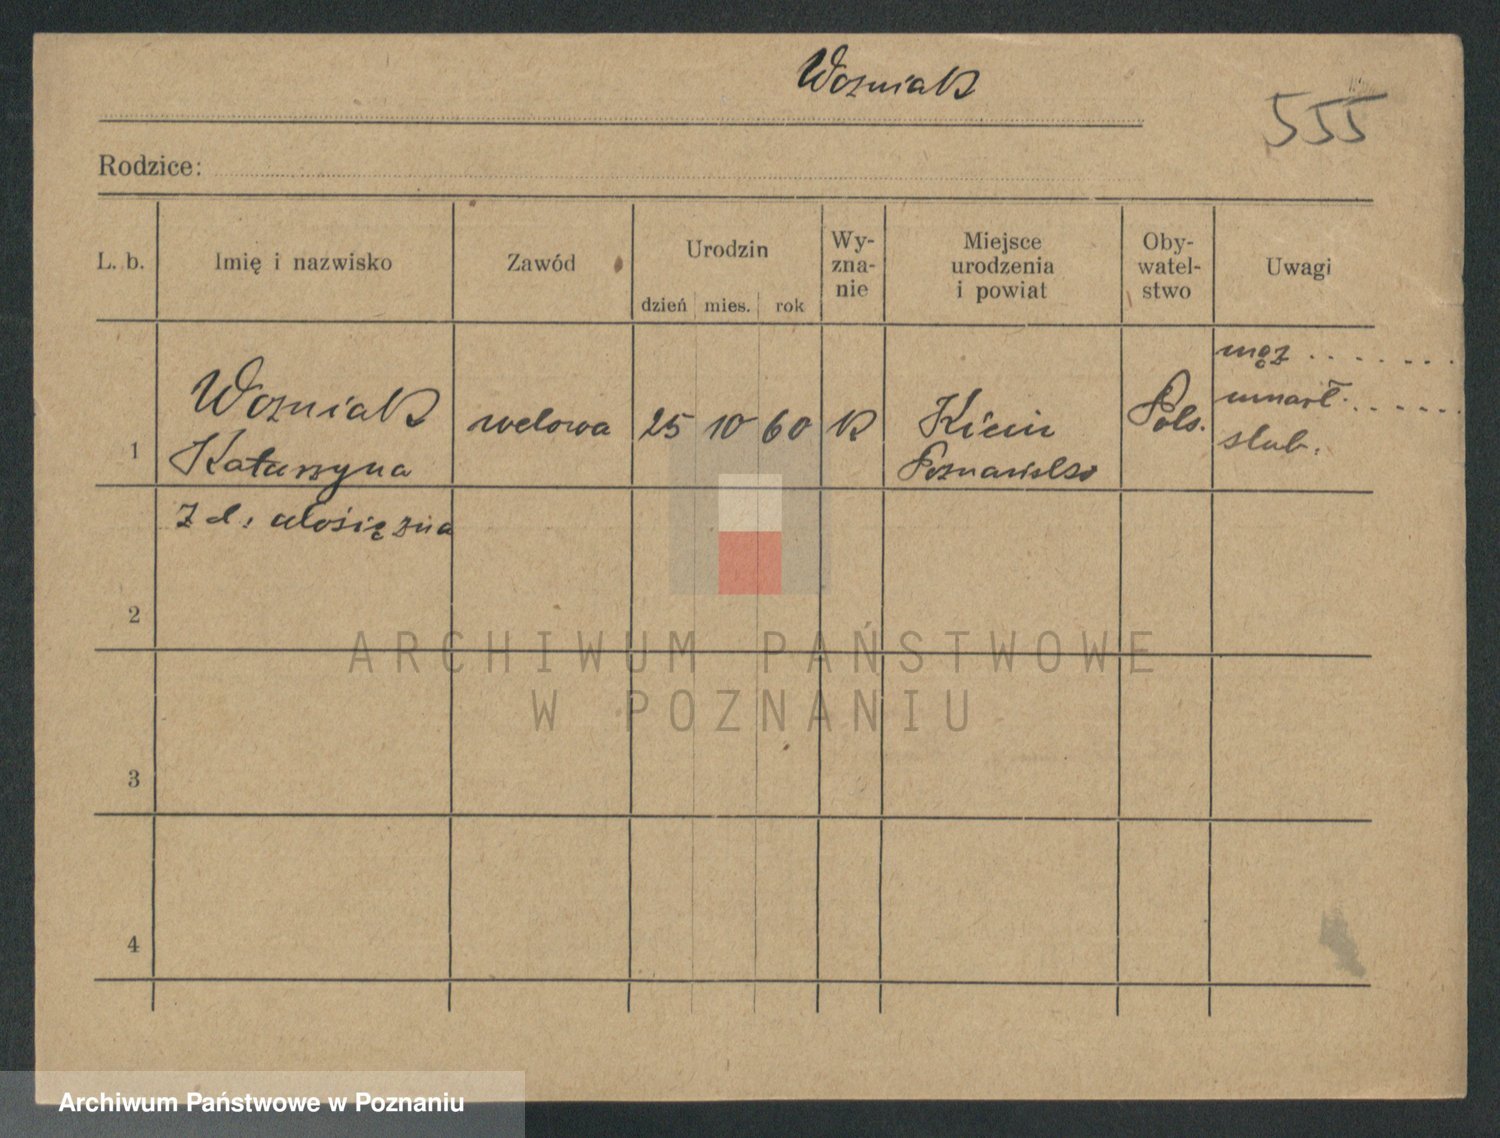 Wozniak
555
Rodzice:
L. b.
Imię i nazwisko
Zawód
Urodzin
dzień mies. rok
Wy-
zna-
nie
Miejsce
urodzenia
i powiat
Oby-
watel-
stwo
Uwagi
1
Wozniak
Katarzyna
wdowa
25 10 60
K
Kicin
Poznański
Pols.
mąż . . . . . . .
umarł. . . . . . .
ślub.
2
z d.
3
4
ARCHIWUM PAŃSTWOWE
W POZNANIU
Archiwum Państwowe w Poznaniu